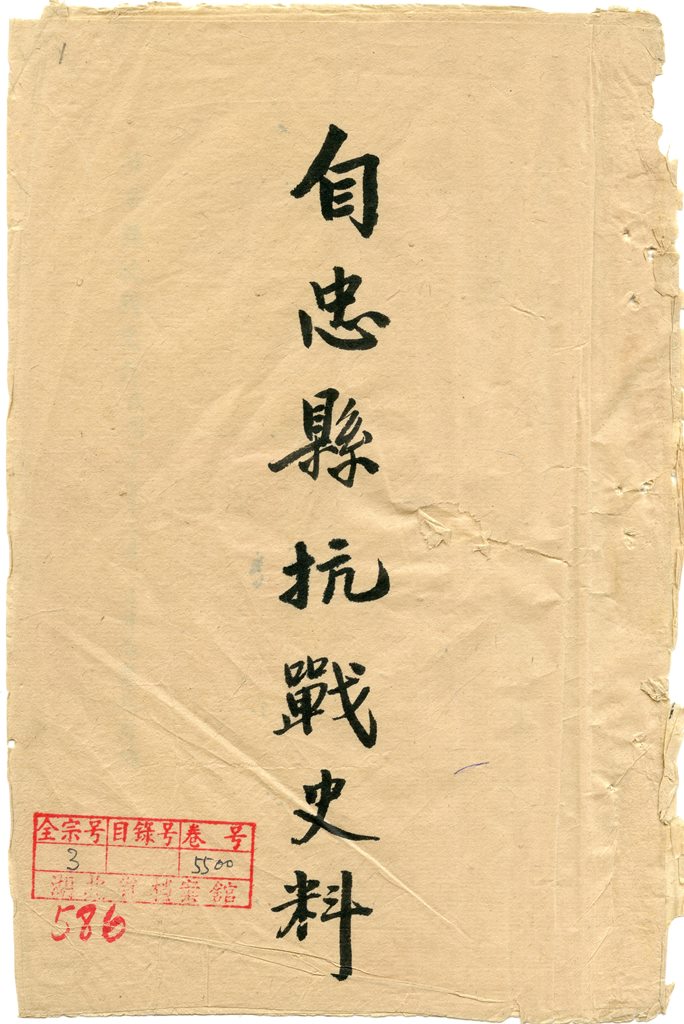 1
自忠縣抗戰史料
全宗号 目錄号 卷号
3 5500
湖北省档案館
586